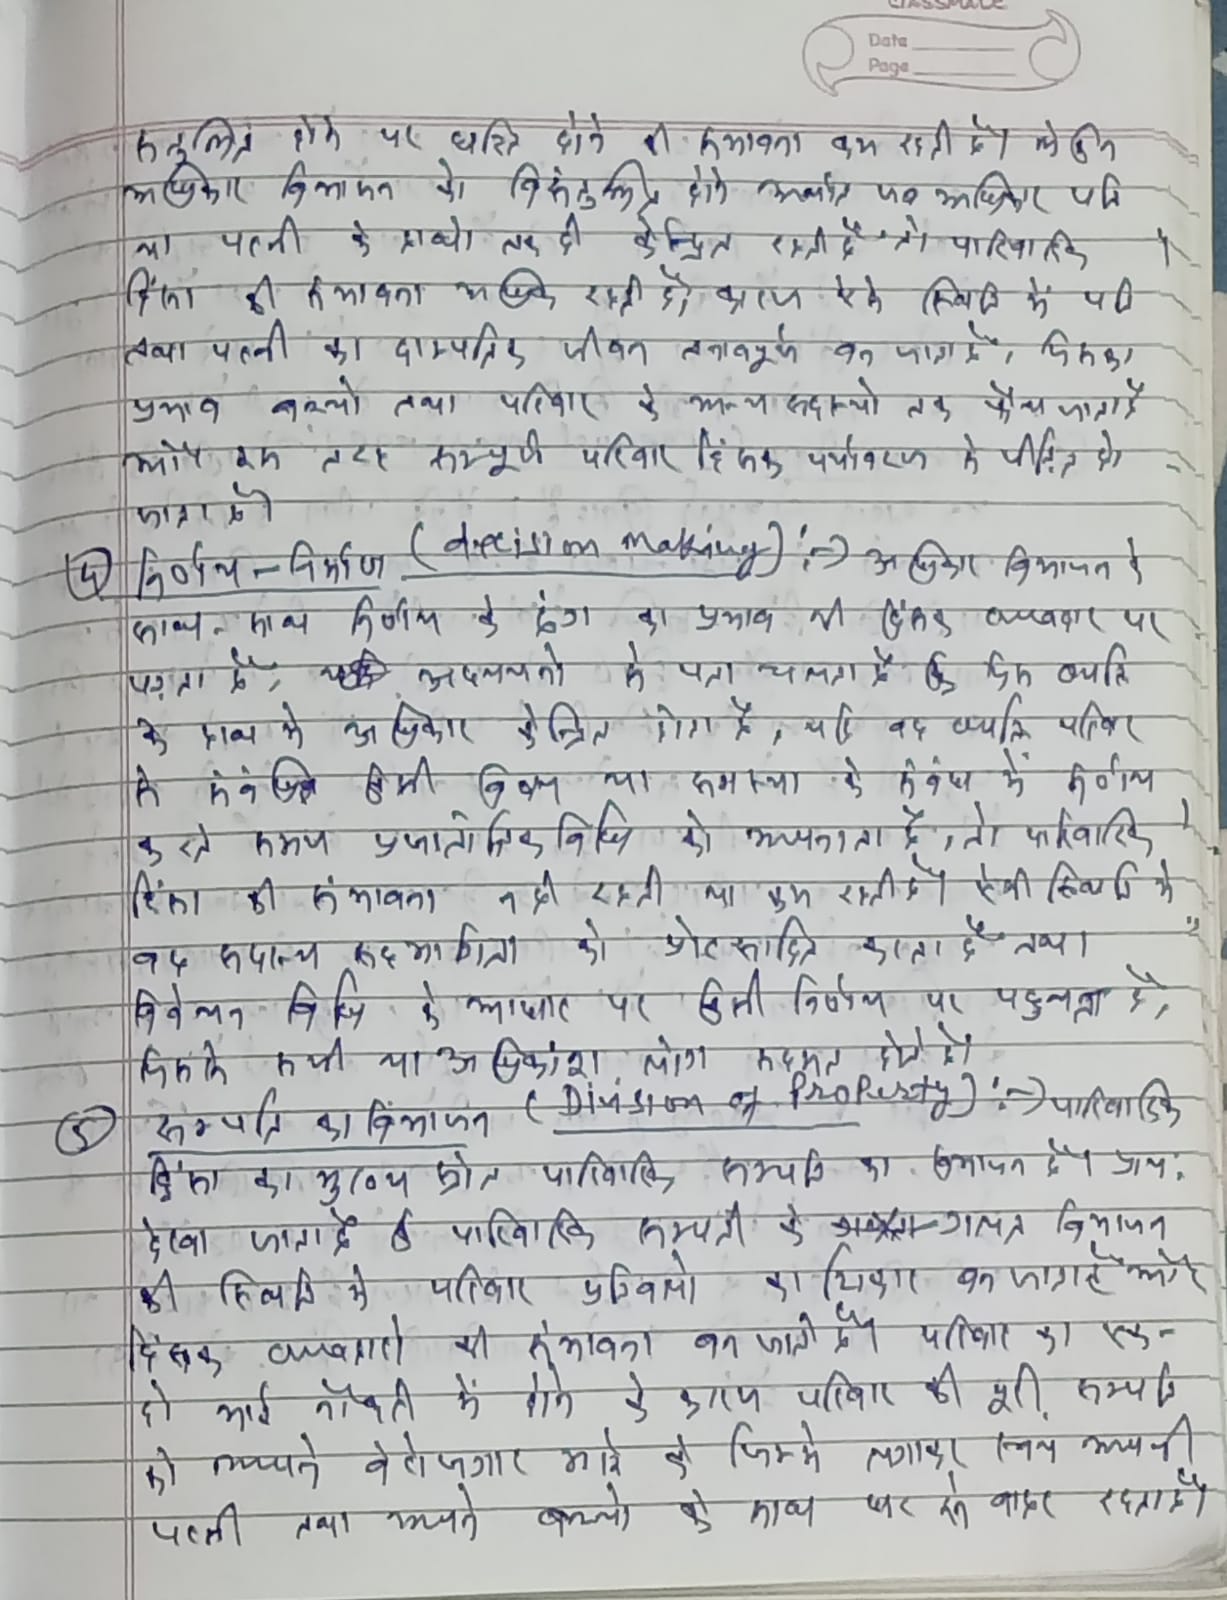 classmate
Date
Page
संतुलित होने पर घटित होने की संभावना कम रहती है। लेकिन
अधिकार विभाजन के विसंतुलित होने अर्थात जब अधिकार पति
या पत्नी के हाथों तक ही केन्द्रित रहती है तो पारिवारिक
हिंसा की संभावना अधिक रहती है, कारण ऐसे स्थिति में पति
तथा पत्नी का दाम्पतिक जीवन तनावपूर्ण बन जाता है, जिसका
प्रभाव बच्चों तथा परिवार के अन्य सदस्यों तक फैल जाता है
और इस तरह सम्पूर्ण परिवार हिंसक पर्यावरण से पीड़ित हो
जाता है।
(4) निर्णय-निर्माण (decision making) :→ अधिकार विभाजन के
साथ-साथ निर्णय के ढंग का प्रभाव भी हिंसक व्यवहार पर
पड़ता है, अध्ययनों से पता चलता है कि जिस व्यक्ति
के हाथ में अधिकार केन्द्रित होता है, यदि वह व्यक्ति परिवार
से संबंधित किसी विषय या समस्या के संबंध में निर्णय
करते समय प्रजातांत्रिक विधि को अपनाता है, तो पारिवारिक
हिंसा की संभावना नही रहती या कम रहती है। ऐसी स्थिति में
वह सदस्य सहभागिता को प्रोत्साहित करता है तथा
विवेचन विधि के आधार पर किसी निर्णय पर पहुचता है,
जिससे सभी या अधिकांश लोग सहमत होते है।
(5) सम्पति का विभाजन (Division of Property) :→ पारिवारिक
हिंसा का मुख्य स्रोत पारिवारिक सम्पति का विभाजन है। प्रायः
देखा जाता है कि पारिवारिक सम्पती के गलत विभाजन
की स्थिति में परिवार प्रतिबलों का शिकार बन जाता है और
हिंसक व्यवहारों की संभावना बन जाती है। परिवार का एक-
दो भाई नौकरी में होने के कारण परिवार की पूरी सम्पति
को अपने बेरोजगार भाई के जिम्मे लगाकर स्वयं अपनी
पत्नी तथा अपने बच्चों के साथ घर से बाहर रहता है।